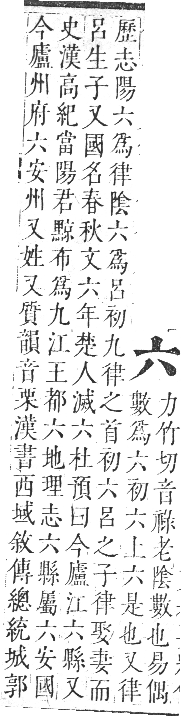 六
力竹切音祿老陰數也易偶
數爲六初六上六是也又律
歷志陽六爲律陰六爲呂初九律之首初六呂之子律娶妻而
呂生子又國名春秋文六年楚人滅六杜預曰今廬江六縣又
史漢高紀當陽君黥布爲九江王都六地理志六縣屬六安國
今廬州府六安州又姓又質韻音栗漢書西域敘傳總統城郭